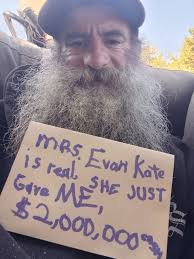 MRS. Evan Kate
is real. SHE JUST
Gave ME,
$2,000,000